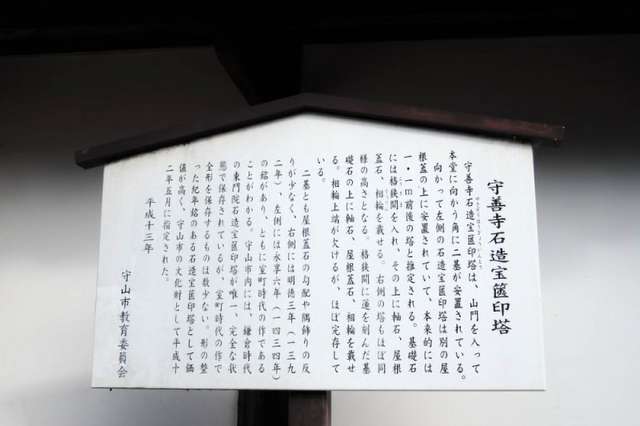 守善寺石造宝篋印塔
守善寺石造宝篋印塔は、山門を入って
本堂に向かう角に二基が安置されている。
向かって左側の石造宝篋印塔は別の屋
根蓋の上に安置されていて、本来的には
一・一m前後の塔と推定される。基礎石
には格狭間を入れ、その上に軸石、屋根
蓋石、相輪を載せる。右側の塔もほぼ同
様の高さとなる。格狭間に蓮を刻んだ基
礎石の上に軸石、屋根蓋石、相輪を載せ
る。相輪上端が欠けるが、ほぼ完存して
いる。
二基とも屋根蓋石の勾配や隅飾りの反
りが少なく、右側には明徳三年（一三九
二年）、左側には永享六年（一四三四年）
の銘があり、ともに室町時代の作である
ことがわかる。守山市内には、鎌倉時代
の東門院石造宝篋印塔が唯一、完全な状
態で保存されているが、室町時代の作で
全形を保存するものは数少ない。形の整
った紀年銘のある石造宝篋印塔として価
値が高く、守山市の文化財として平成十
二年五月に指定された。
平成十三年
守山市教育委員会